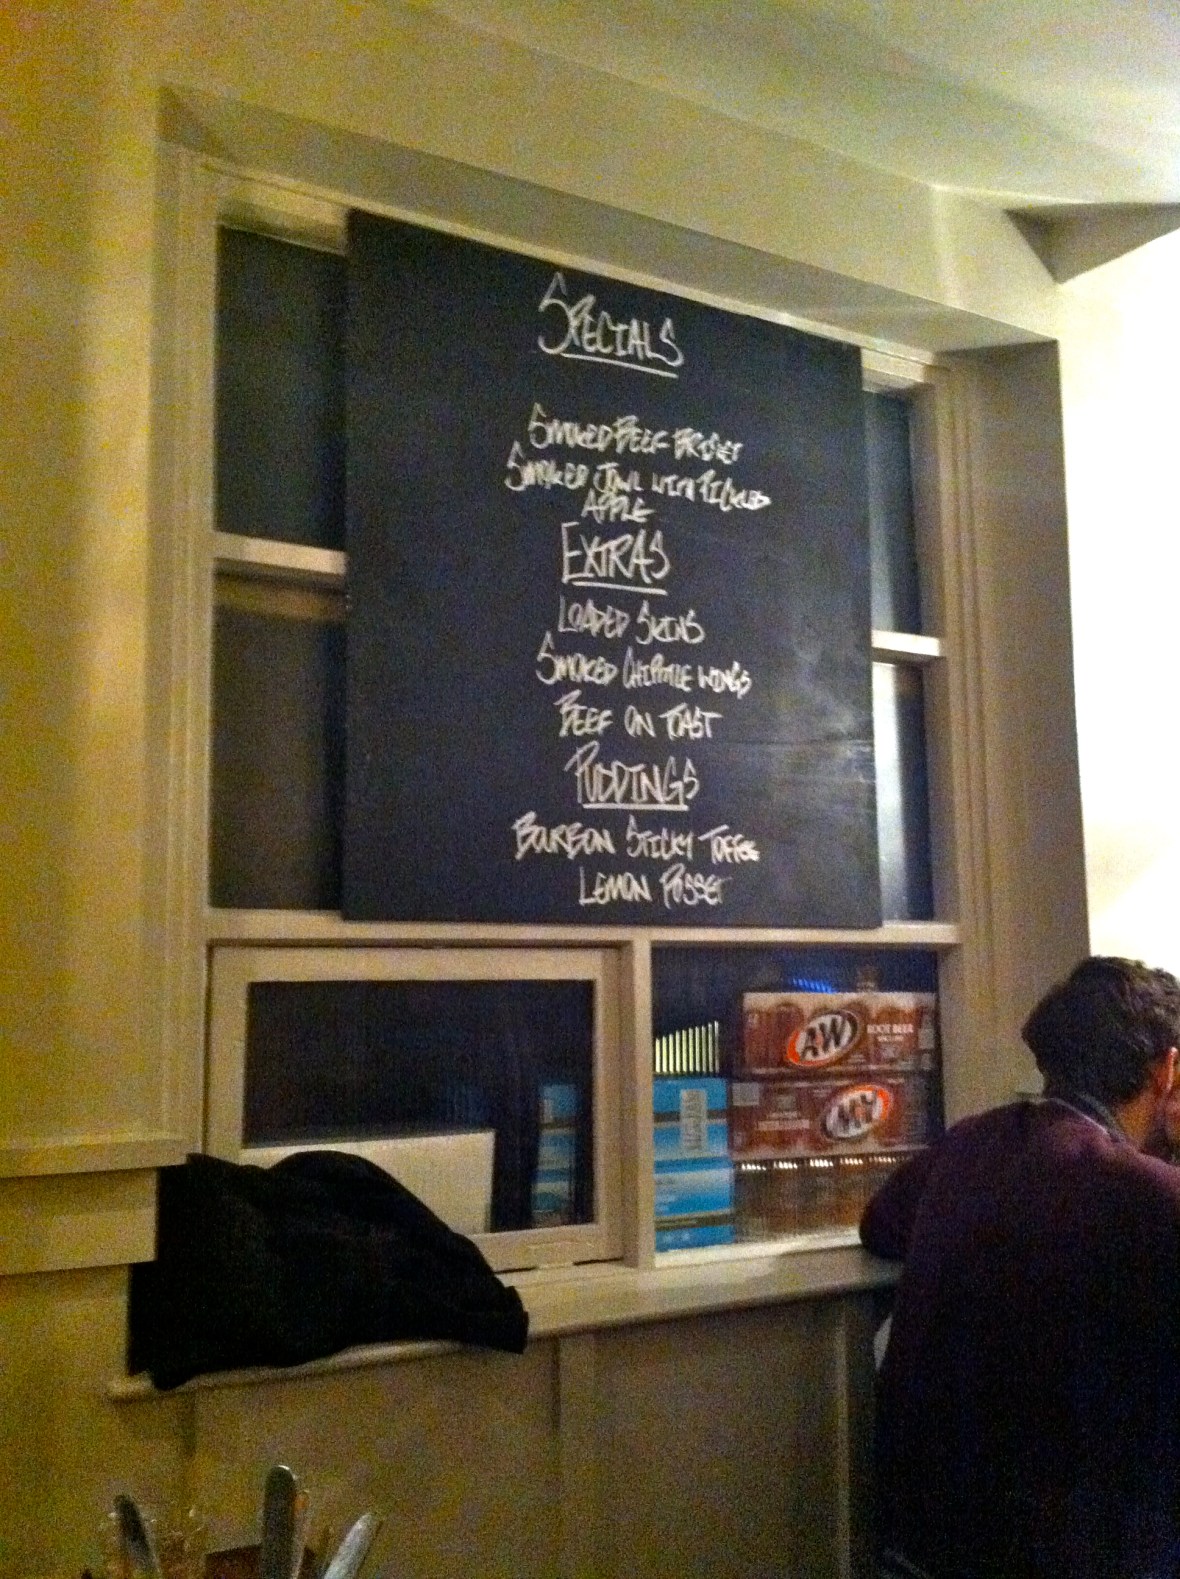 SPECIALS
SMOKED BEEF BRISKET
SMOKED JOWL WITH PICKLED
APPLE
EXTRAS
LOADED SKINS
SMOKED CHIPOTLE WINGS
BEEF ON TOAST
PUDDINGS
BOURBON STICKY TOFFEE
LEMON POSSET
A&W
ROOT BEER
A&W